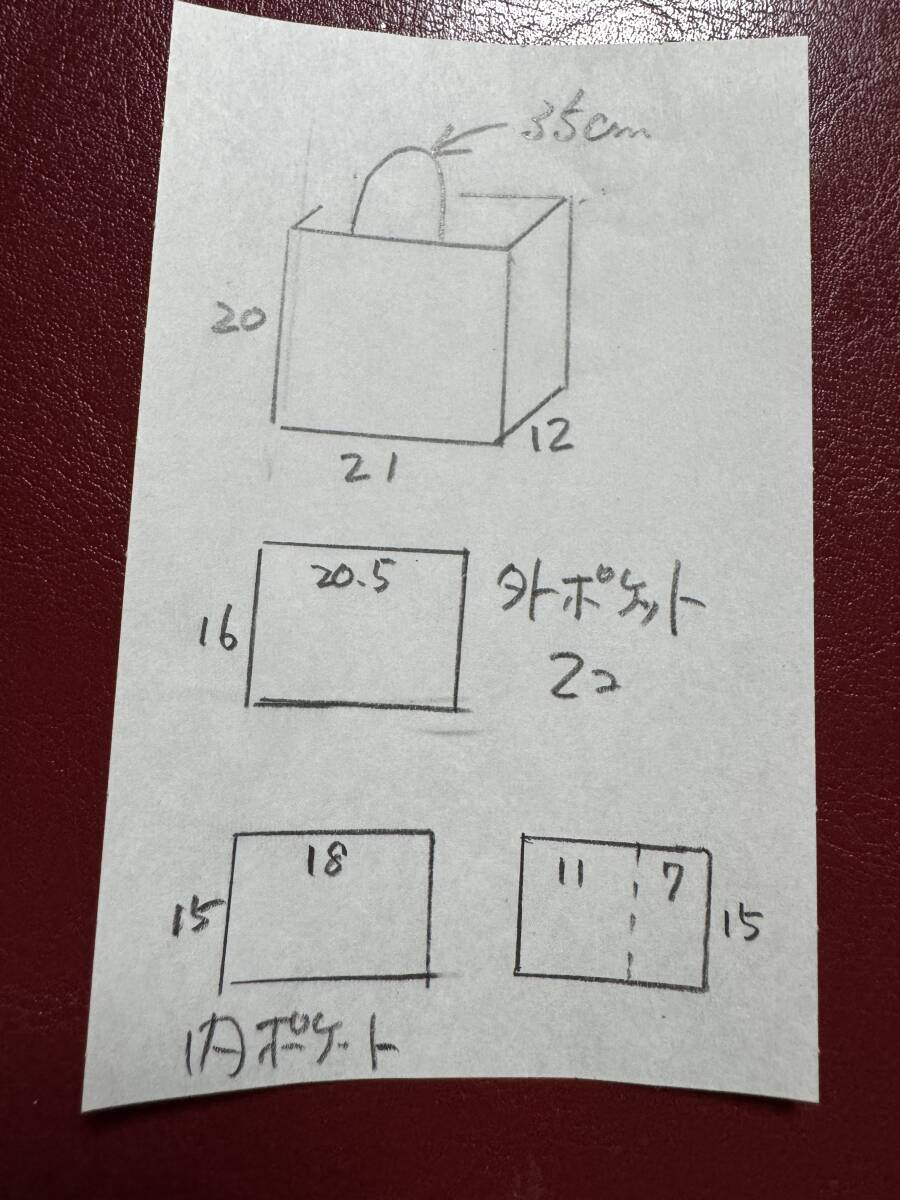 35cm
20
12
21
20.5
16
外ポケット
2コ
18
15
11
7
15
内ポケット